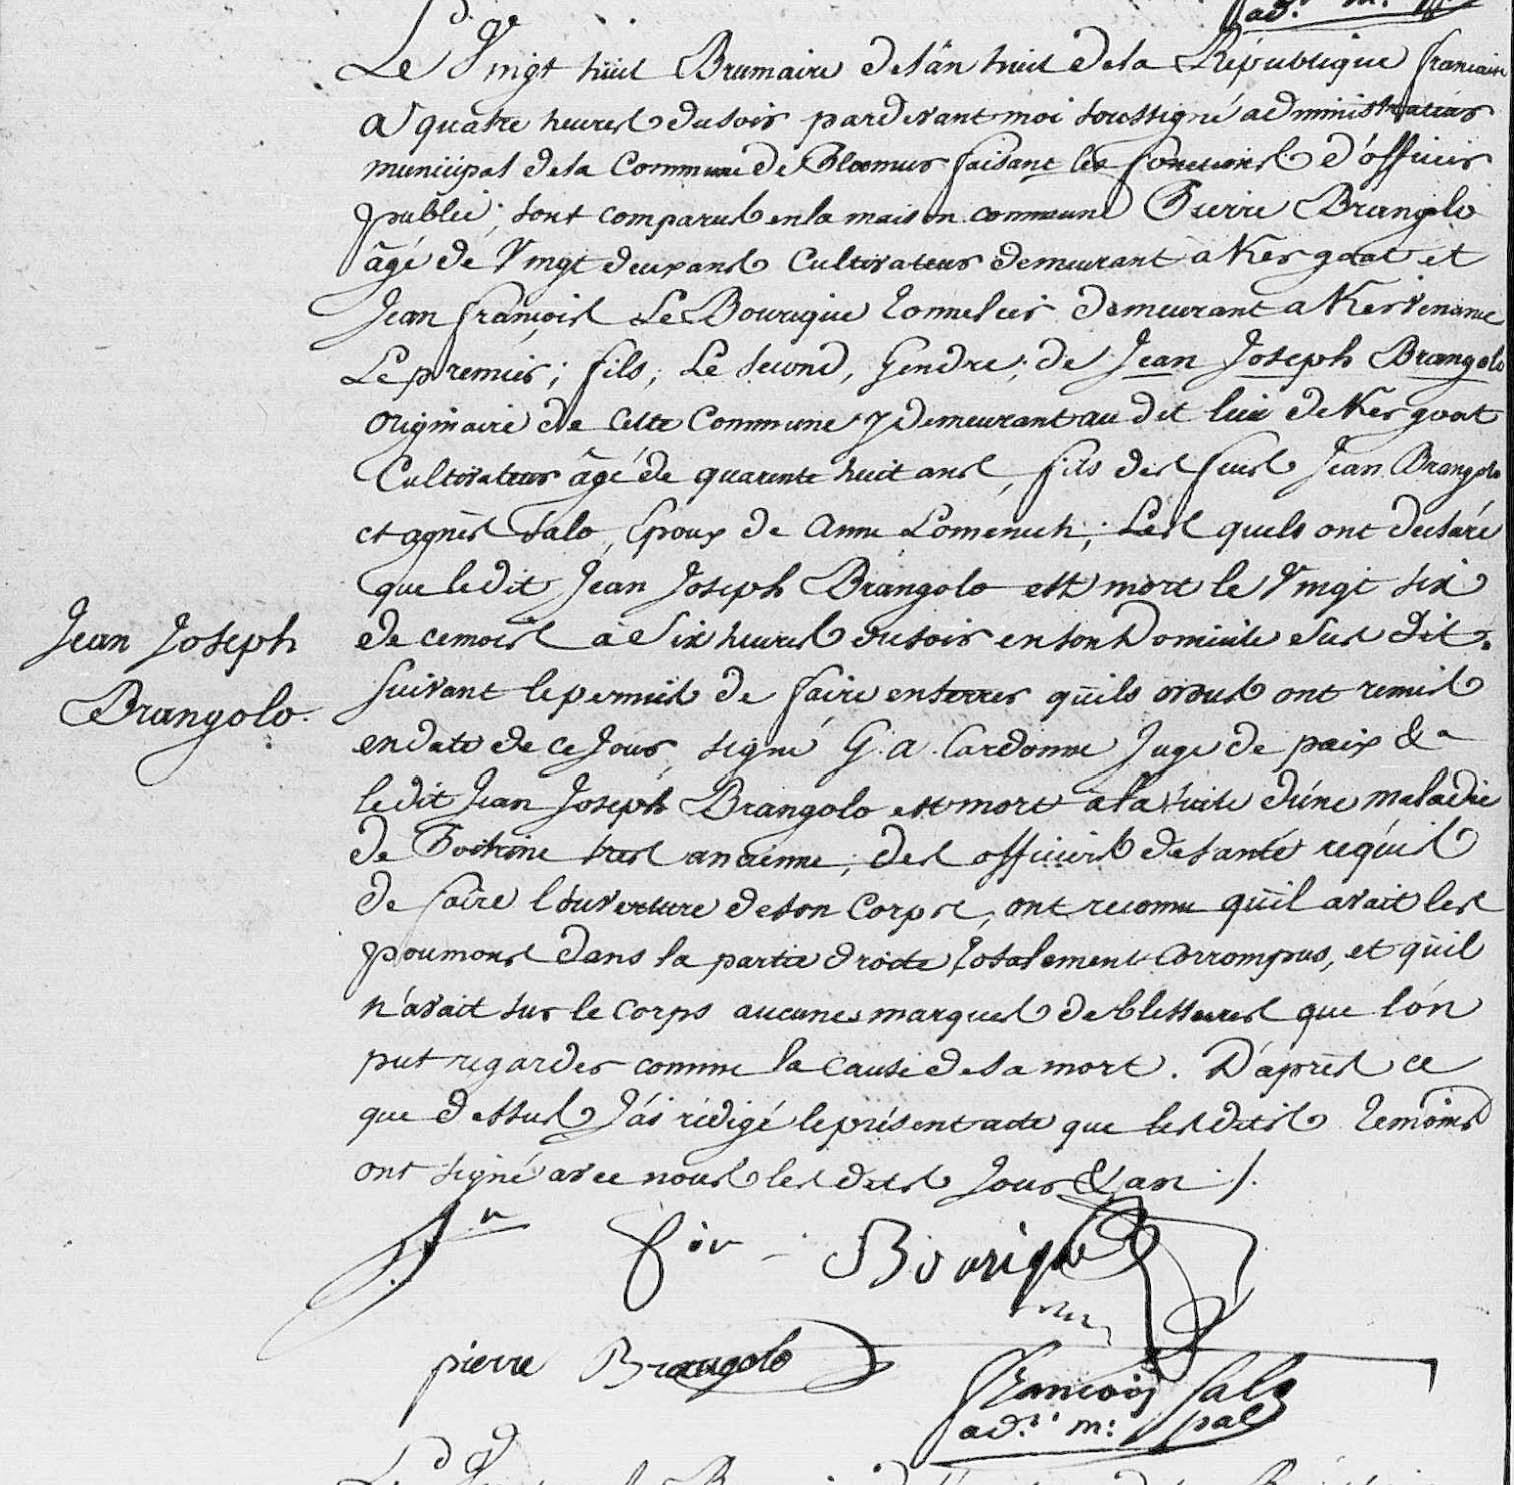 ad.r m.
Le Vingt huit Brumaire de l'an huit de la République francaise
a quatre heures du soir pardevant moi soussigné administrateur
municipal de la Commune de Ploemur faisant les fonctions d'officier
public; sont comparus en la maison commune Pierre Brangolo
âgé de Vingt deux ans Cultivateur demeurant a Kergoat et
Jean françois Le Bourique tonnelier demeurant a Kervenanec
Le premier; fils, Le second, Gendre; de Jean Joseph Brangolo
originaire de Cette Commune y demeurant au dit lieu de Kergoat
Cultivateur âgé de quarente huit ans, fils des feus Jean Brangolo
et agnès Salo, Epoux de Anne Lomenech; Lesquels ont déclaré
que ledit Jean Joseph Brangolo est mort le Vingt six
de ce mois à Six heures du soir en son Domicile Sus dit.
suivant le permis de faire enterrer qu'ils nous ont remis
en date de ce jour, signé G. a. Cardonne Juge de paix &a
ledit Jean Joseph Brangolo est mort à la suite d'une maladie
de Poitrine tres ancienne; des officiers de santé requis
de faire l'ouverture de son Corps, ont reconnu qu'il avait les
poumons dans la partie droite totalement corrompus, et qu'il
n'avait sur le corps aucunes marques de blessures que l'on
put regarder comme la cause de sa mort. D'après ce
que dessus J'ai rédigé le présent acte que lesdits temoins
ont signé avec nous les dits Jour & an ./.
Jean Joseph
Brangolo.
Jn foiv - Bourique
pierre Brangolo
francois Salo
ad.r m: pal